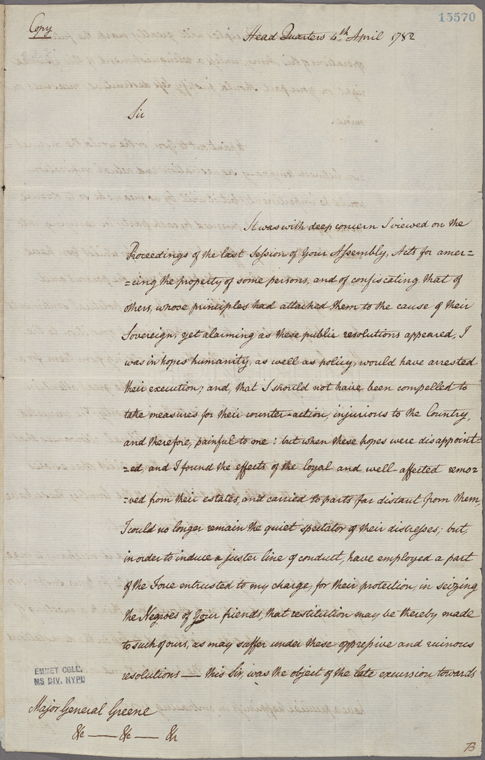 Copy
15570
Head Quarters 4th April 1782
Sir
It was with deep concern I viewed on the
Proceedings of the last Session of Your Assembly, Acts for amer=
=cing the property of some persons, and of confiscating that of
others, whose principles had attached them to the cause of their
Sovereign; yet alarming as these public resolutions appeared, I
was in hopes humanity, as well as policy, would have arrested
their execution; and, that I should not have been compelled to
take measures for their counter-action, injurious to the Country,
and therefore, painful to me: but when these hopes were disappoint=
=ed, and I found the effects of the loyal and well-affected remo=
=ved from their estates, and carried to parts far distant from them,
I could no longer remain the quiet spectator of their distresses; but,
in order to induce a juster line of conduct, have employed a part
of the Force entrusted to my charge, for their protection, in seizing
the Negroes of Your friends, that restitution may be thereby made
to such of ours, as may suffer under these oppressive and ruinous
resolutions — this Sir was the object of the late excursion towards
EMMET COLL.
MS DIV. NYPL
Major General Greene
&c — &c — &c
B